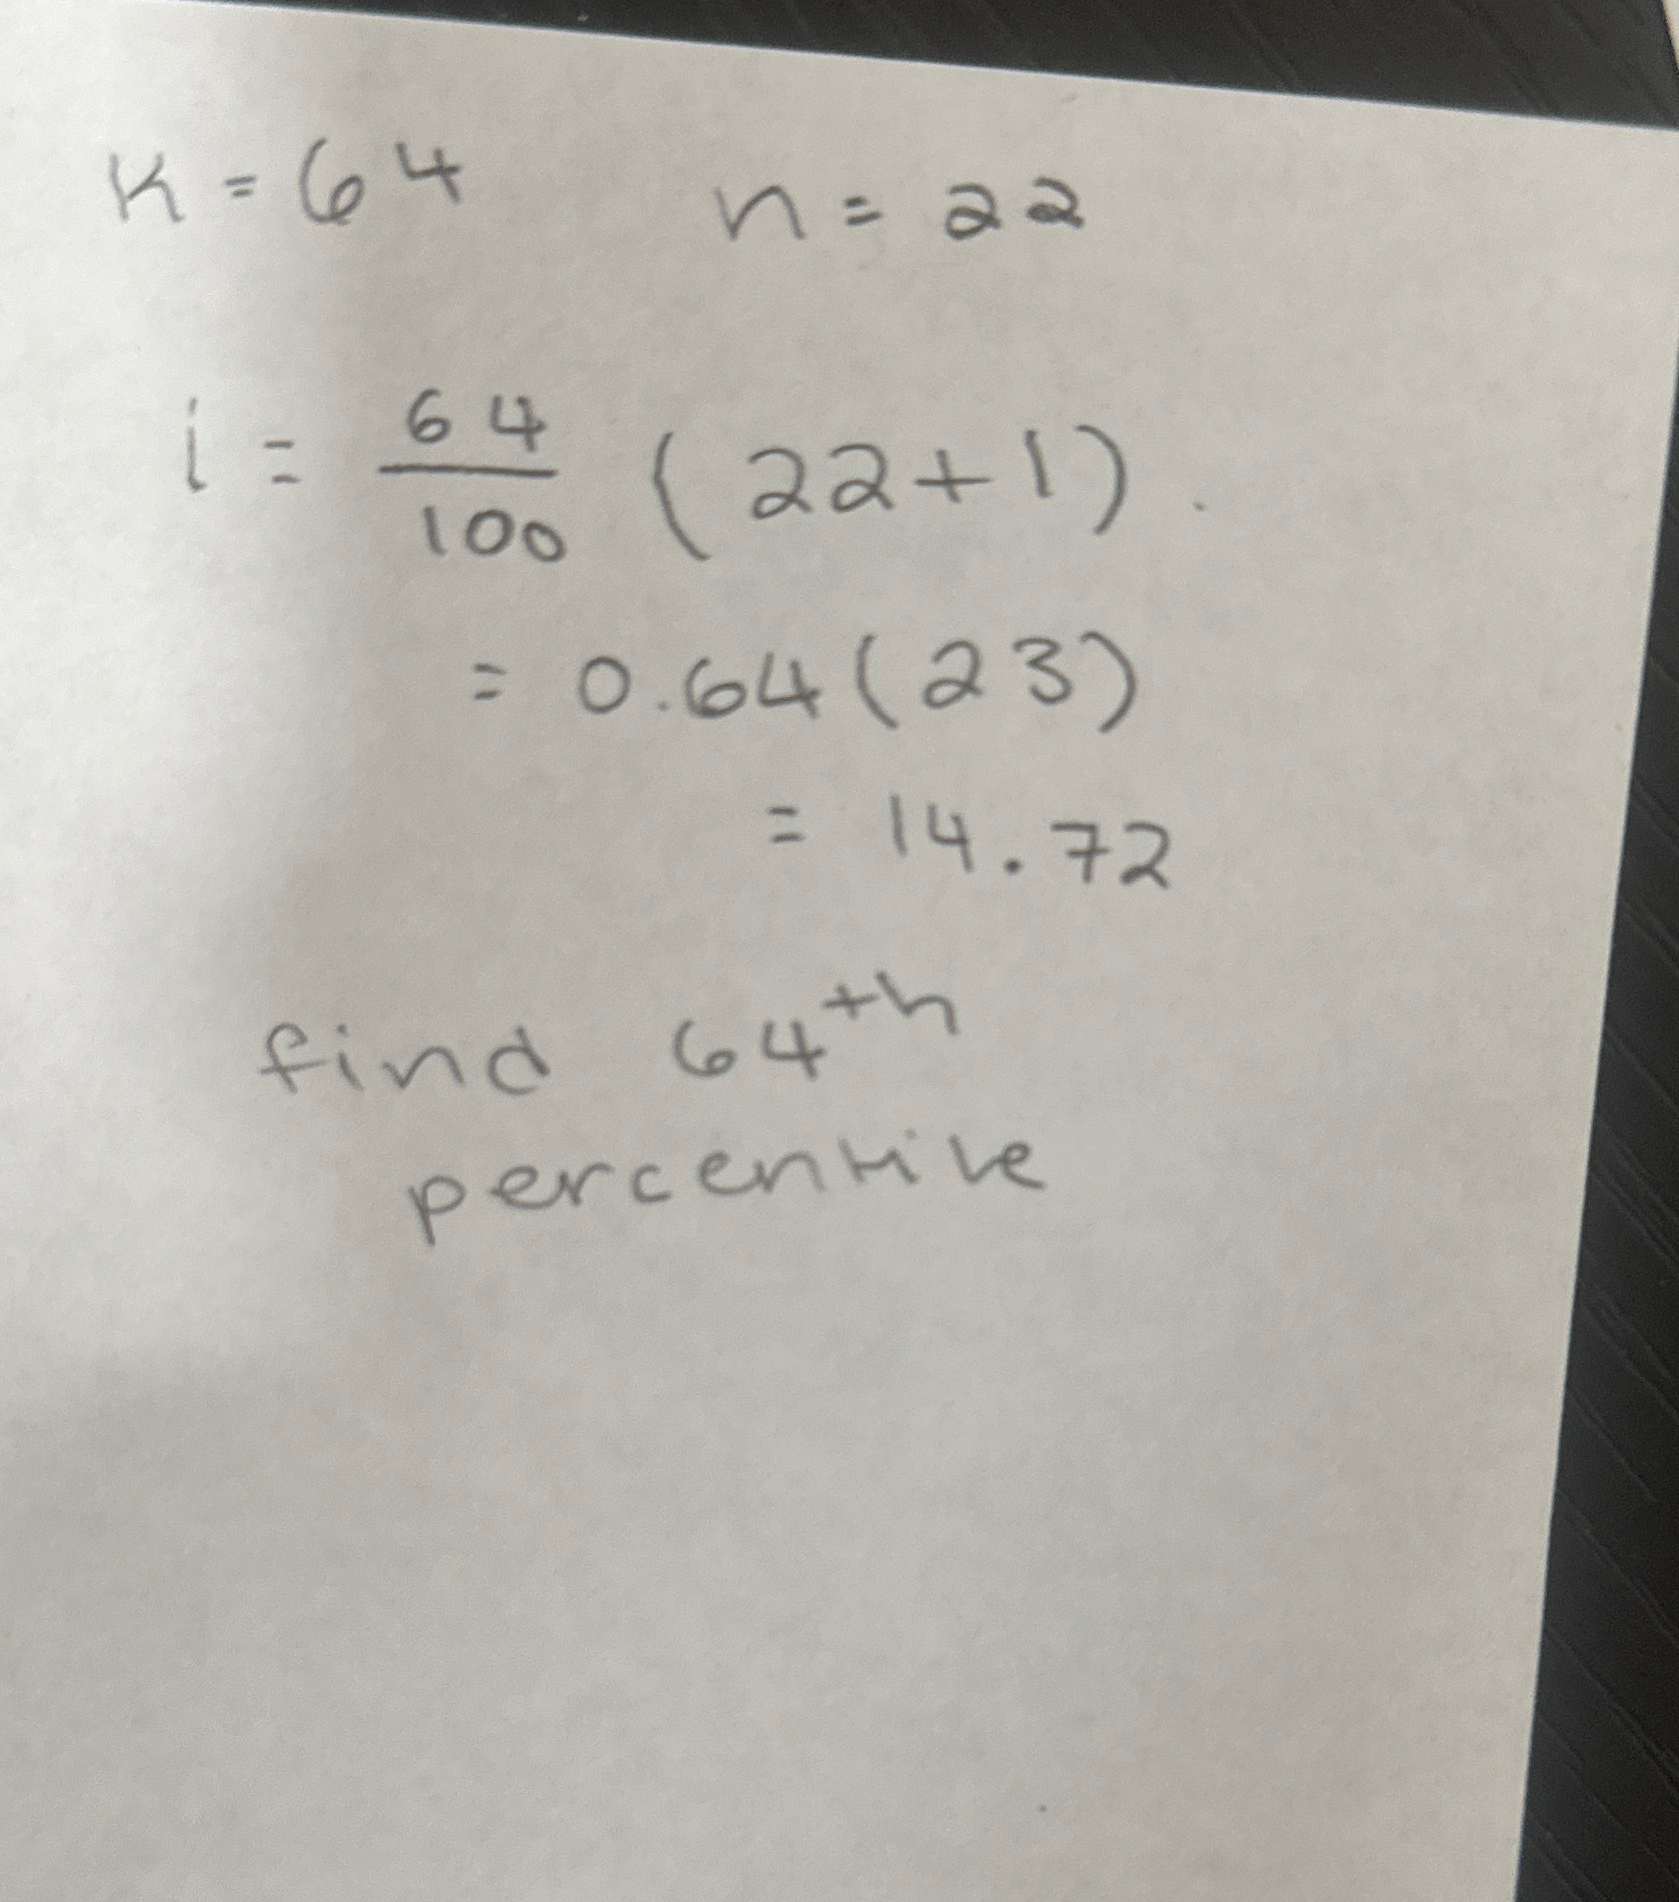 K = 64 n = 22
i = 64/100 (22+1).
= 0.64(23)
= 14.72
find 64th
percentile